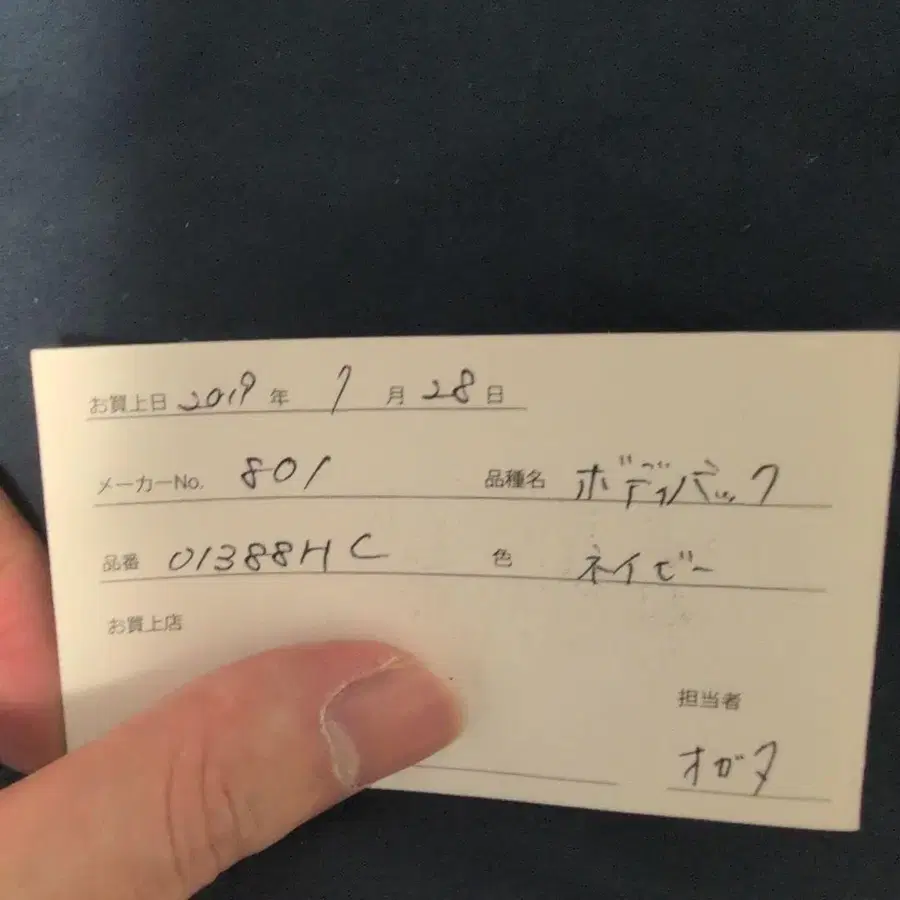 お買上日 2019 年 7 月 28 日
メーカーNo. 801 品種名 ボディバッグ
品番 01388HC 色 ネイビー
お買上店
担当者
オガタ